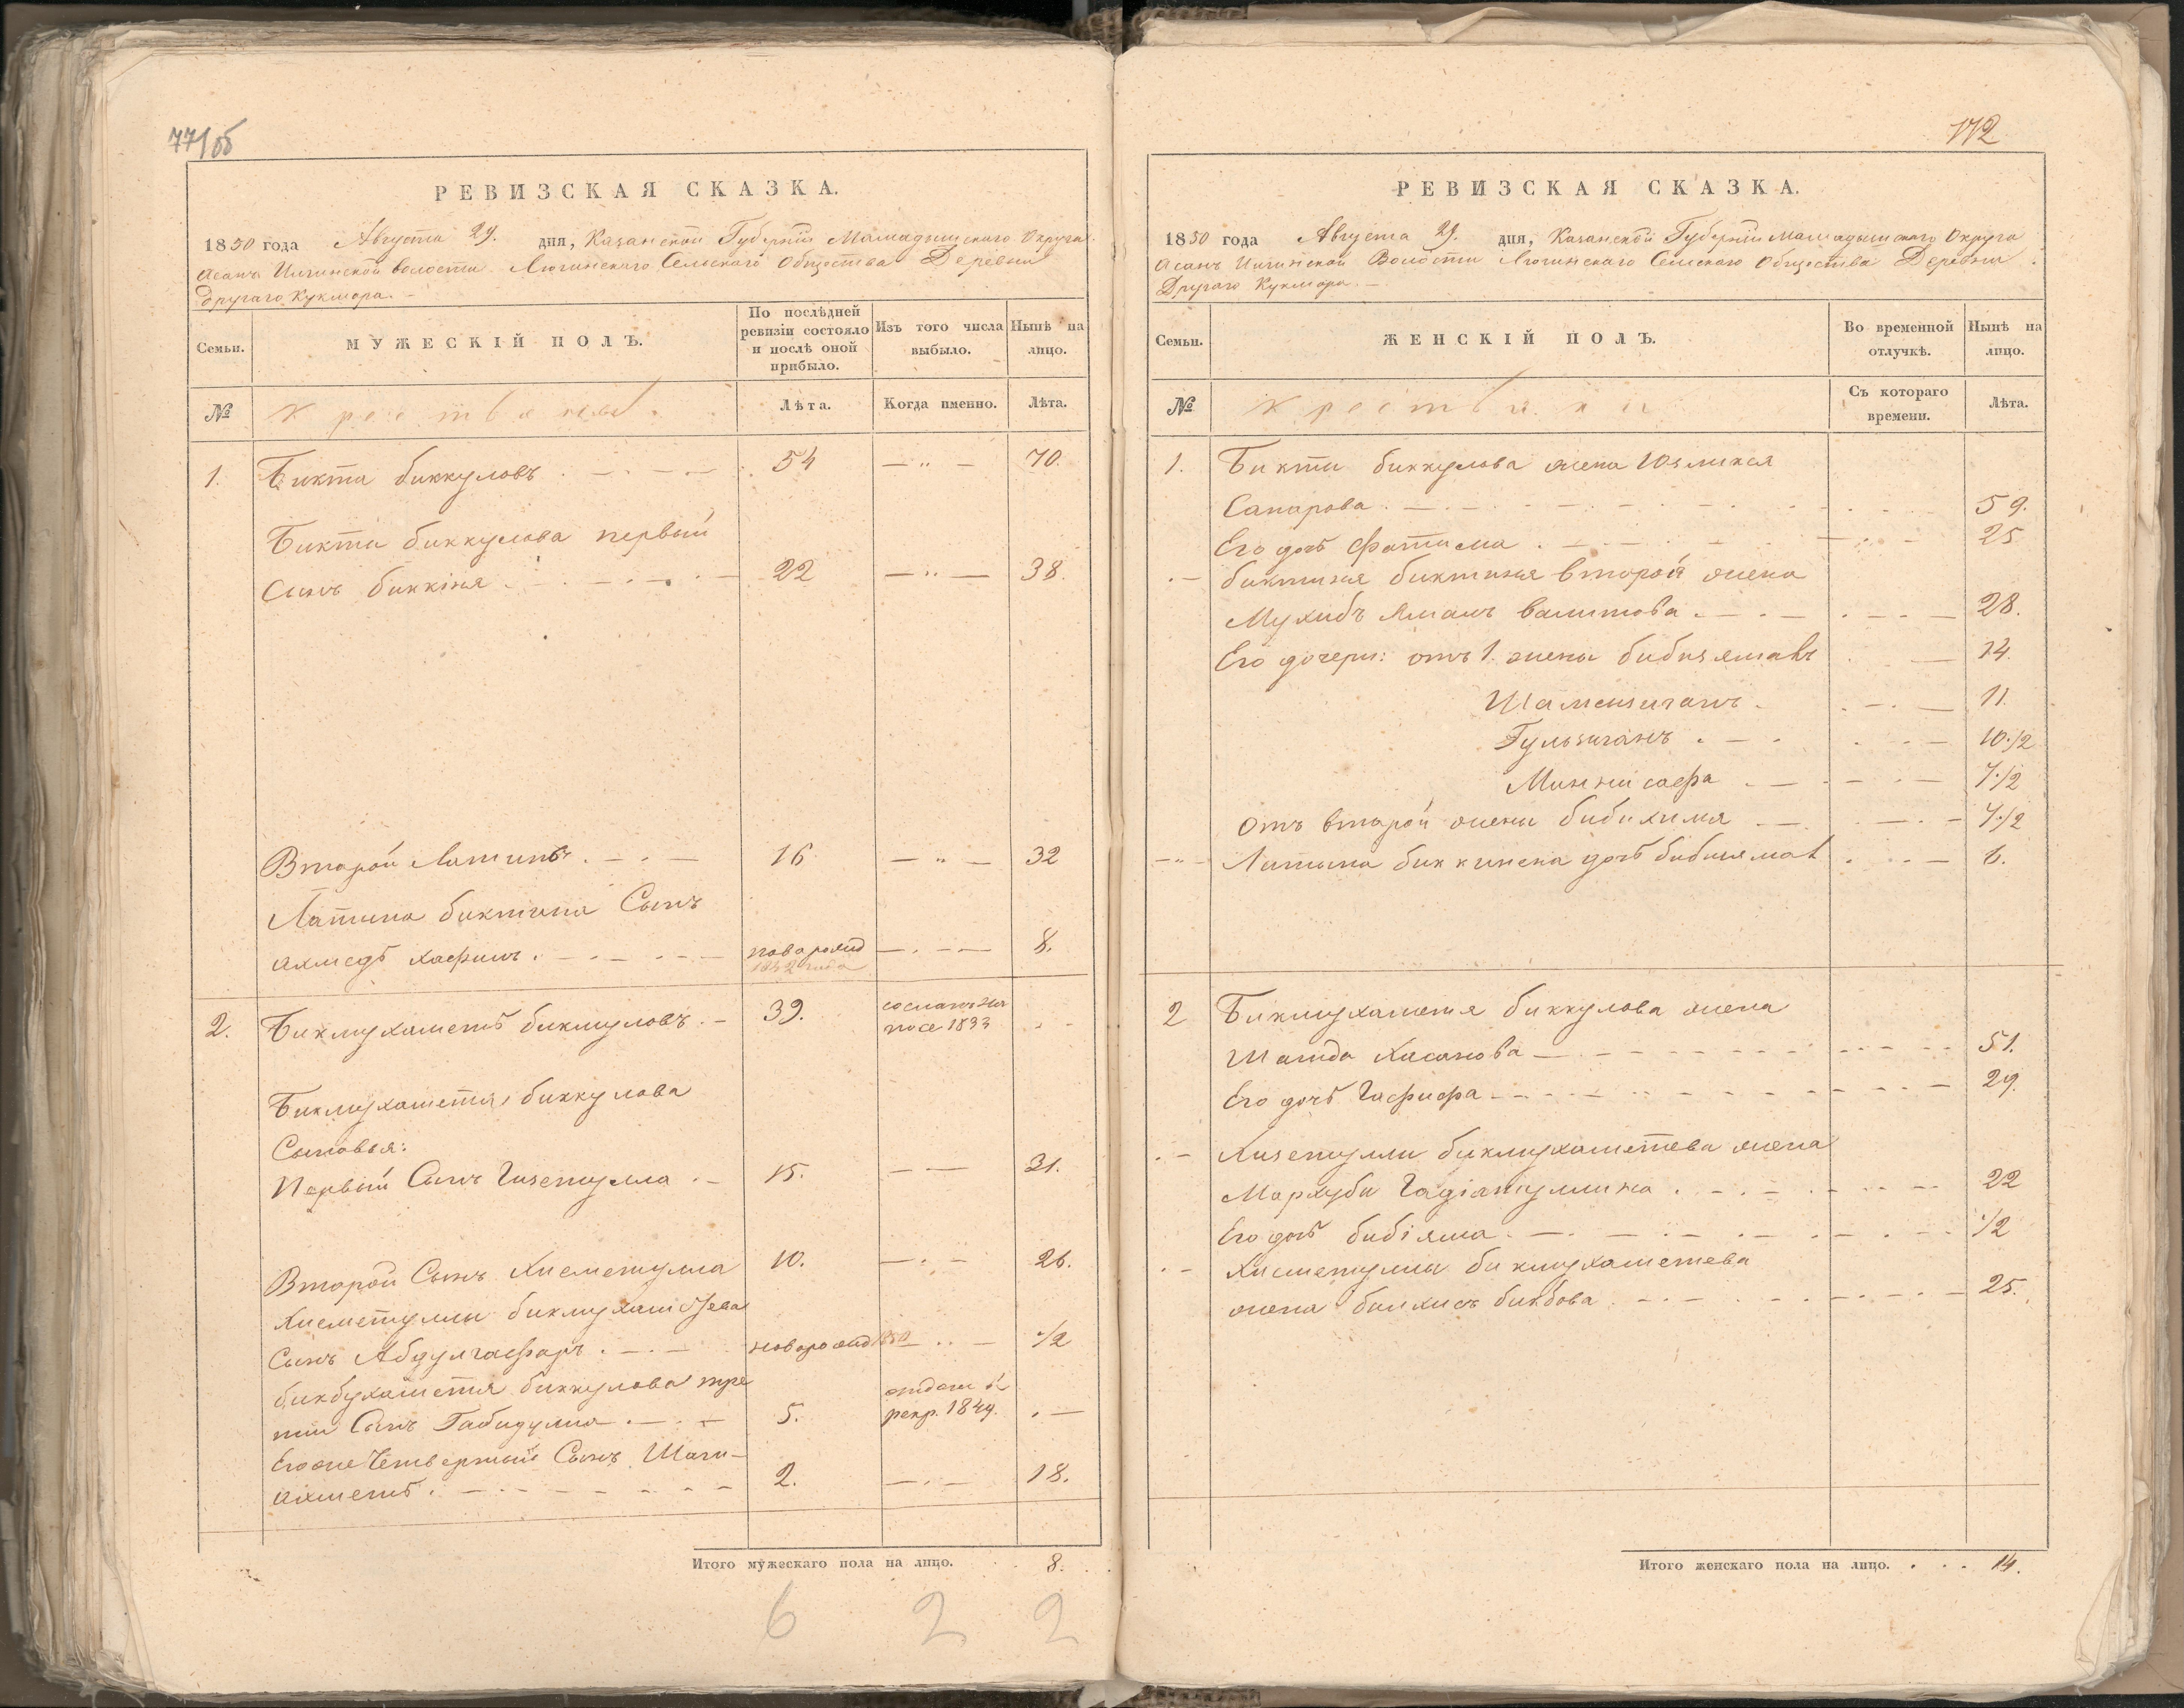 77/об
РЕВИЗСКАЯ СКАЗКА.
1850 года Августа 29. дня, Казанской Губерніи Мамадышскаго Округа.
Асанъ Илгинской волости Люгинскаго Сельскаго Общества Деревни
другаго Кукмора.
Семьи.
МУЖЕСКІЙ ПОЛЪ.
По послѣдней ревизіи состояло и послѣ оной прибыло.
Изъ того числа выбыло.
Нынѣ на лицо.
№ Крестьяне. Лѣта. Когда именно. Лѣта.
1. Бикта биккуловъ 54 — " — 70.
Бикти биккулова первый
Сынъ биккіня 22 — " — 38.
Второй Латипъ 16 — " — 32
Латипа биктина Сынъ
ахмедъ хафизъ новорожд 8.
1842 года
2. Бикмухаметъ бикмуловъ 39. сосланъ на
посе 1833
Бикмухаметя биккулова
Сыновья:
Первый Сынъ Гизетулла 15. — — 31.
Второй Сынъ Хисметулла 10. 26.
Хисметуллы бикмухаметева
Сынъ Абдулгафаръ новорожд 1850 1/2
бикбухаметя биккулова тре
тий Сынъ Габидулла 5. отданъ в
рекр. 1849.
Его же Четвертый Сынъ Шаги-
ахметъ 2. 18.
Итого мужескаго пола на лицо. 8.
6 2 2
172
РЕВИЗСКАЯ СКАЗКА.
1850 года Августа 29. дня, Казанской Губерніи Мамадышскаго Округа
Асанъ Илгинской Волости Люгинскаго Сельскаго Общества Деревни
Другаго Кукмора.
Семьи.
ЖЕНСКІЙ ПОЛЪ.
Во временной отлучкѣ.
Нынѣ на лицо.
№ Крестьянки Съ котораго времени. Лѣта.
1. Бикти биккулова жена Юзликея
Сапарова 59.
Его дочь Фатима 25
биктиня биктина второй жена
Мухибъ Ямалъ валитова 28.
Его дочери: отъ 1. жены бибизямалъ 14.
Шамсигаянъ 11.
Гульзиганъ 10 1/2
Миннисафа 7 1/2
Отъ второй жены бибихимя 7 1/2
— " — Латыпа биккинена дочь бибиямал 6.
2 Бикмухаметя биккулова жена
Шагида Хасанова 51.
Его дочь Гафифа 29.
Хизетуллы бикмухаметева жена
Мархуби Гадіятуллина 22
Его дочь бибіяма 1/2
Хисметуллы бикмухаметева
жена билхисъ бикбова 25.
Итого женскаго пола на лицо. 14.